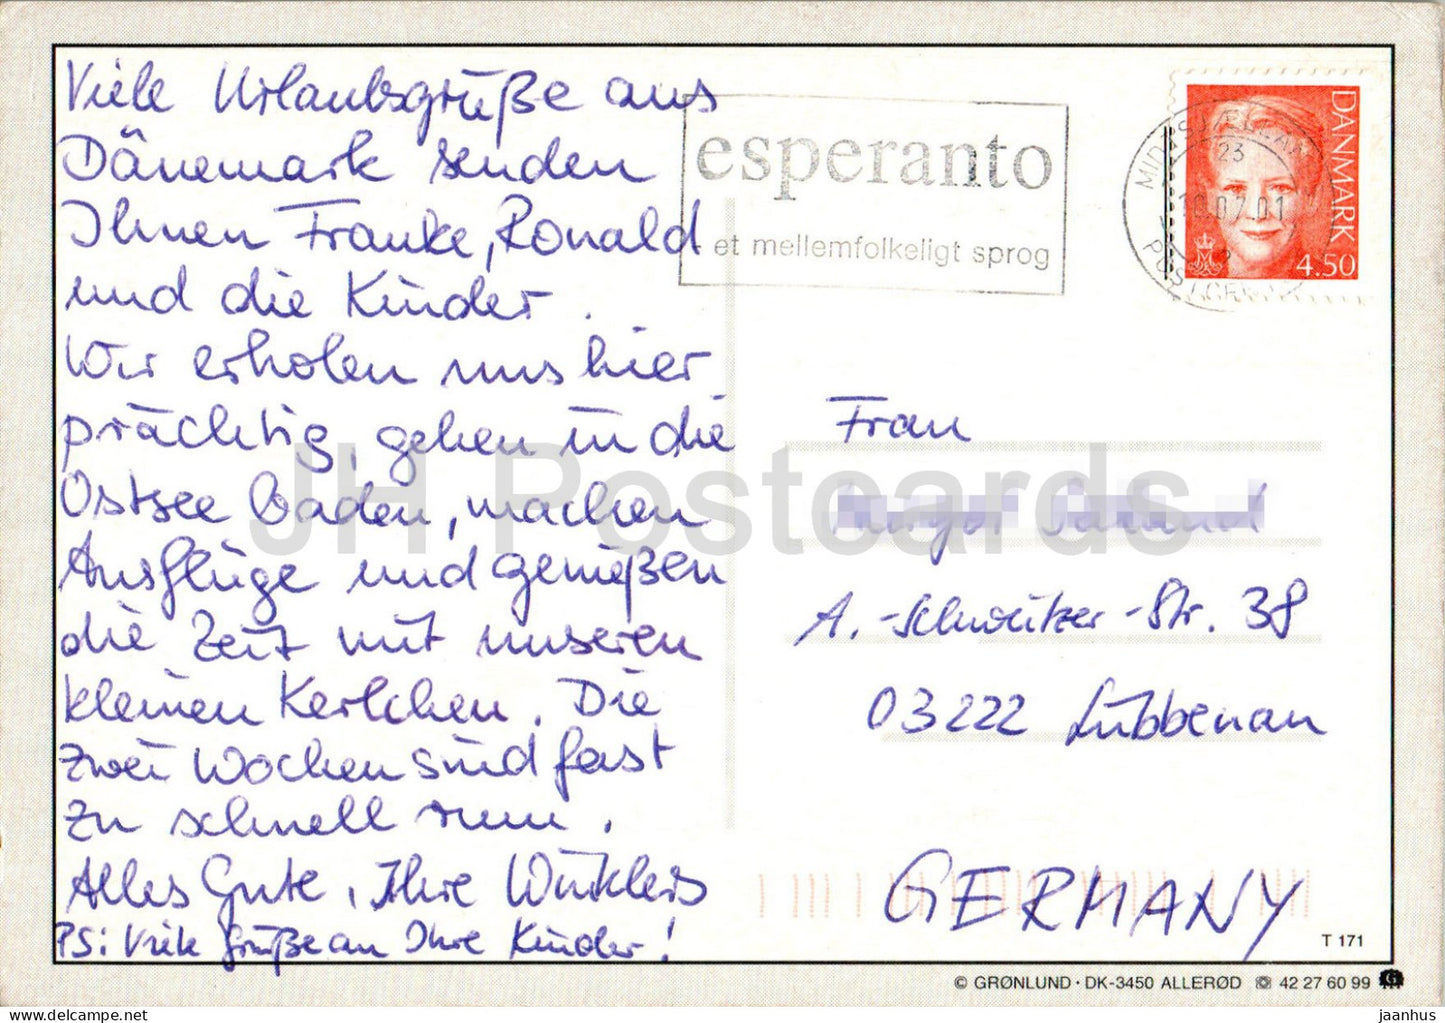 Viele Urlaubsgrüße aus
Dänemark senden
Ihnen Frauke, Ronald
und die Kinder.
Wir erholen uns hier
prächtig, gehen in die
Ostsee baden, machen
Ausflüge und genießen
die Zeit mit unseren
kleinen Kerlchen. Die
zwei Wochen sind fast
zu schnell rum.
Alles Gute, Ihre Winklers
PS: Viele Grüße an Ihre Kinder!
esperanto
- et mellemfolkeligt sprog
23
18.07.01
DANMARK
4.50
Frau
A.-Schweitzer-Str. 38
03222 Lübbenau
GERMANY
T 171
© GRØNLUND · DK-3450 ALLERØD ☏ 42 27 60 99
JH Postcards
jaanhus